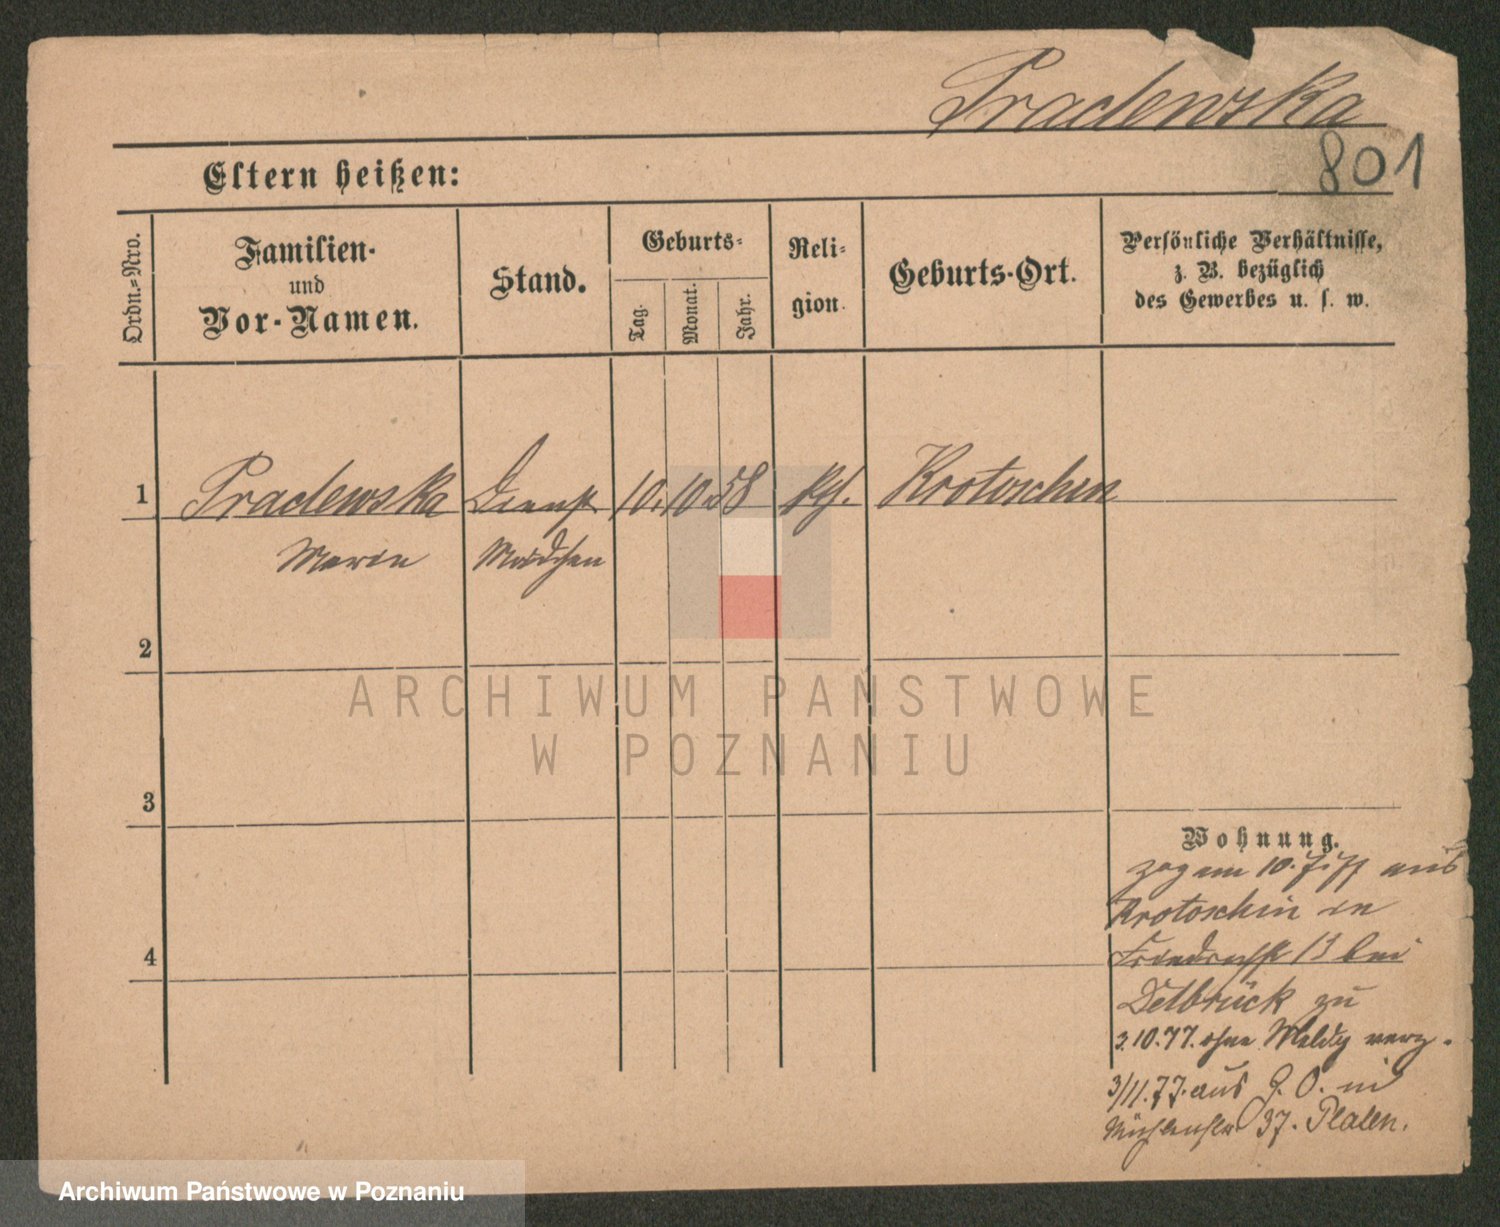 Pradewska
801
Eltern heißen:
Ordn.=Nro.
Familien-
und
Vor-Namen.
Stand.
Geburts=
Tag.
Monat.
Jahr.
Reli=
gion.
Geburts-Ort.
Persönliche Verhältnisse,
z. B. bezüglich
des Gewerbes u. s. w.
1 Pradewska Dienst 10. 10. 58 kth. Krotoschin
Marie Mädchen
2
3
4
Wohnung.
zog am 10. 7. 77 aus
Krotoschin in
Friedrichstr 13 bei
Delbrück zu
3.10.77. ohne Meldg verz.
3/11.77. aus g. O. in
Mühlenstr 37. Platen.
ARCHIWUM PAŃSTWOWE
W POZNANIU
Archiwum Państwowe w Poznaniu